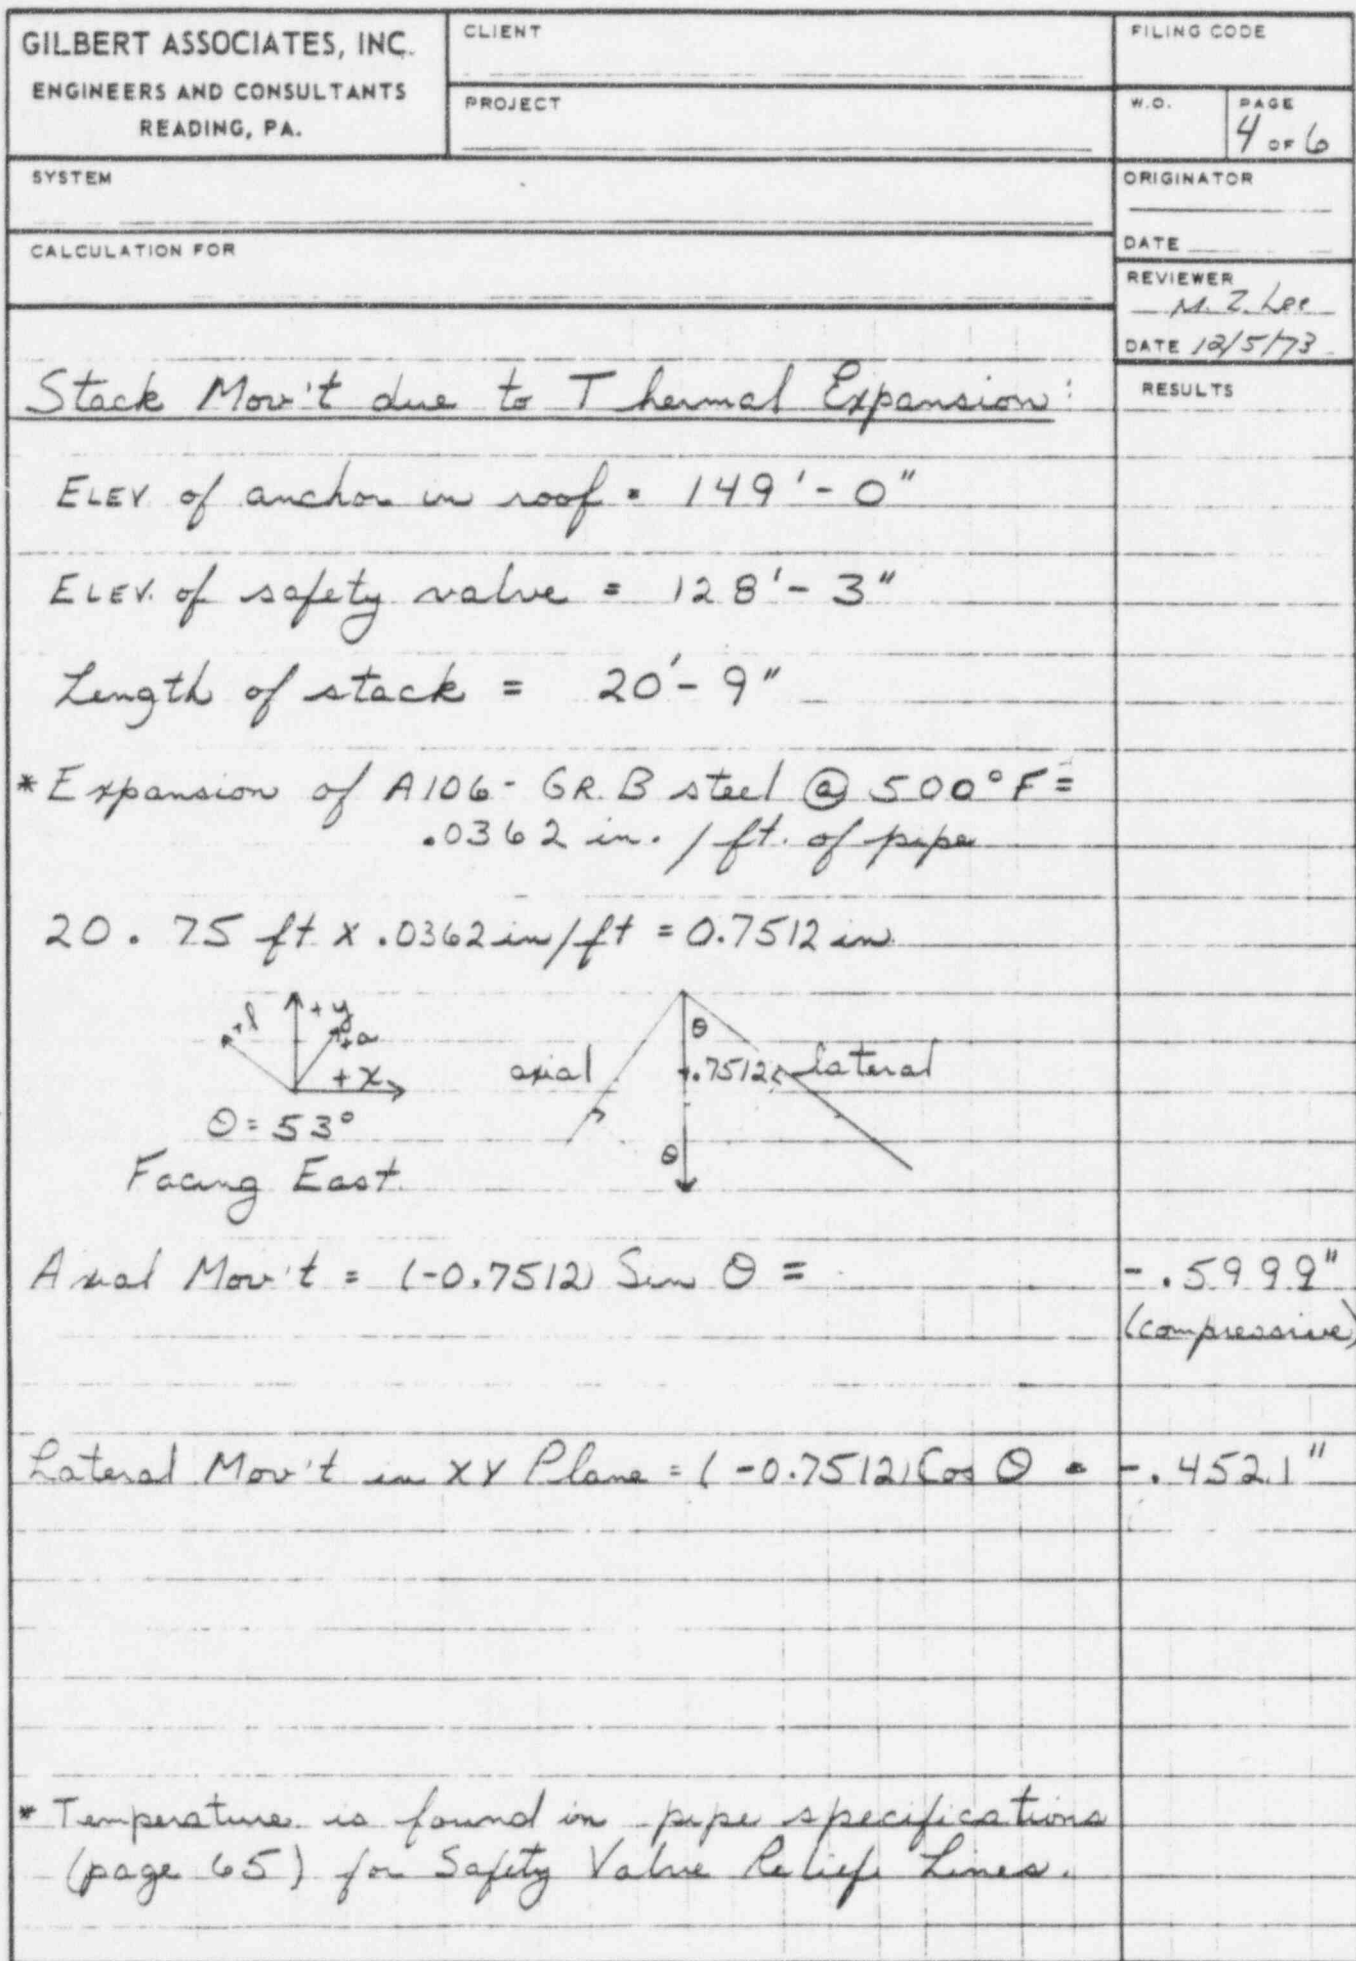 GILBERT ASSOCIATES, INC.
ENGINEERS AND CONSULTANTS
READING, PA.
CLIENT
PROJECT
FILING CODE
W.O.
PAGE
4 OF 6
SYSTEM
ORIGINATOR
DATE
CALCULATION FOR
REVIEWER
M. Z. Lee
DATE 12/5/73
RESULTS
Stack Mov't due to Thermal Expansion:
ELEV. of anchor in roof = 149'-0"
ELEV. of safety valve = 128'-3"
Length of stack = 20'-9"
* Expansion of A106-GR.B steel @ 500°F =
.0362 in. / ft. of pipe
20.75 ft x .0362 in/ft = 0.7512 in
+l +y +a
+x
θ = 53°
Facing East.
axial θ .7512 lateral
θ
Axial Mov't = (-0.7512) Sin θ = -.5999"
(compressive)
Lateral Mov't in XY Plane = (-0.7512) Cos θ = -.4521"
* Temperature is found in pipe specifications
(page 65) for Safety Valve Relief Lines.